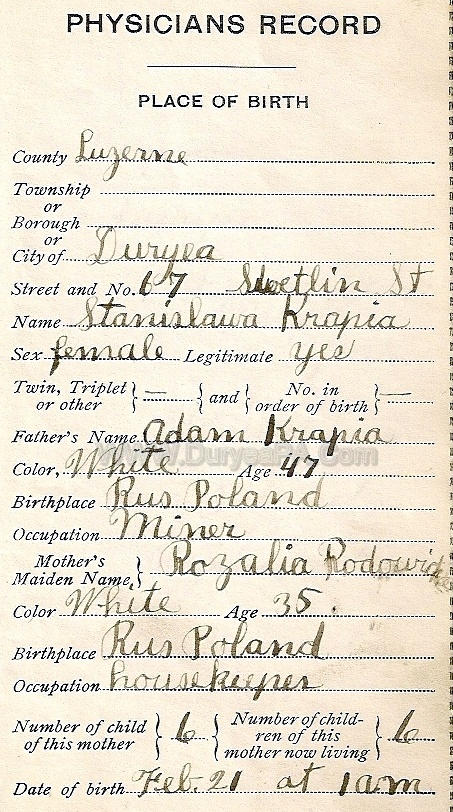 PHYSICIANS RECORD
PLACE OF BIRTH
County Luzerne
Township
or
Borough
or
City of Duryea
Street and No. 67 St
Name Stanislawa Krapia
Sex female Legitimate yes
Twin, Triplet or other } — { and } No. in order of birth } —
Father's Name Adam Krapia
www.DuryeaPa.Com
Color, White Age 47
Birthplace Rus Poland
Occupation Miner
Mother's Maiden Name, } Rozalia
Color White Age 35.
Birthplace Rus Poland
Occupation housekeeper
Number of child of this mother } 6 { Number of children of this mother now living } 6
Date of birth Feb. 21 at 1 am